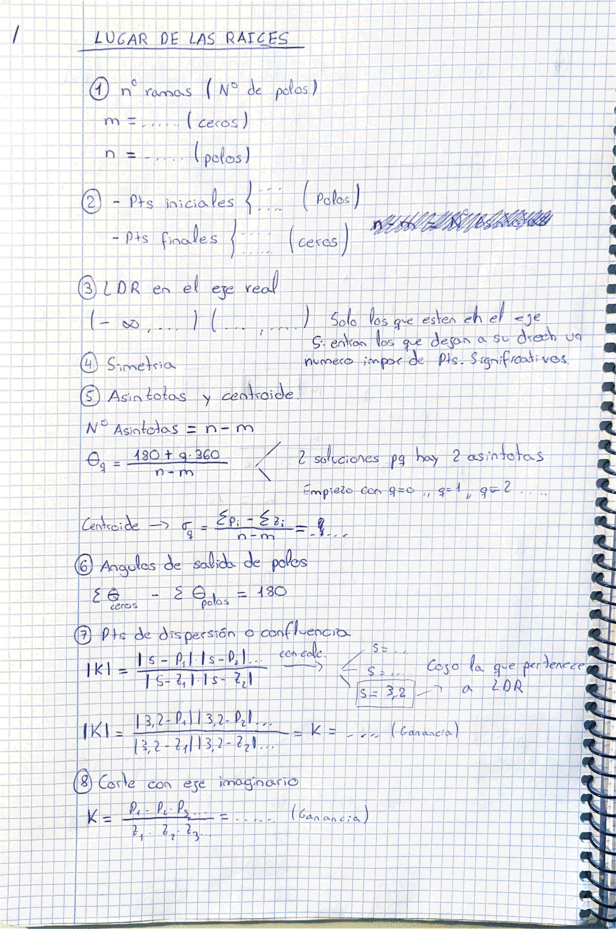 1
LUGAR DE LAS RAICES
① nº ramas (Nº de polos)
m = ...... (ceros)
n = ...... (polos)
② - Pts iniciales {...... (Polos)
- Pts finales {...... (ceros)
③ LDR en el eje real
(-∞, ....) (...., ....) Solo los que esten en el eje
Si entran los que dejan a su drech un
numero impar de Pts. Significativos
④ Simetria
⑤ Asintotas y centroide.
Nº Asintotas = n-m
θq = (180 + q·360) / (n-m) < 2 soluciones pq hay 2 asintotas
Empiezo con q=0 ,, q=1 ,, q=2 ....
Centroide → σq = (Σpi - Σzi) / (n-m) = ....
⑥ Angulos de salida de polos
Σ θceros - Σ θpolos = 180
⑦ Pts de dispersión o confluencia
|K| = (|s-P1|·|s-P2|...) / (|s-z1|·|s-z2|) con calc. → s=... s=... s=3,2 → Cojo la que pertenece
a LDR
|K| = (|3,2-P1||3,2-P2|...) / (|3,2-z1||3,2-z2|...) = K = .... (Ganancia)
⑧ Corte con eje imaginario
K = (P1·P2·P3...) / (z1·z2·z3...) = ...... (Ganancia)